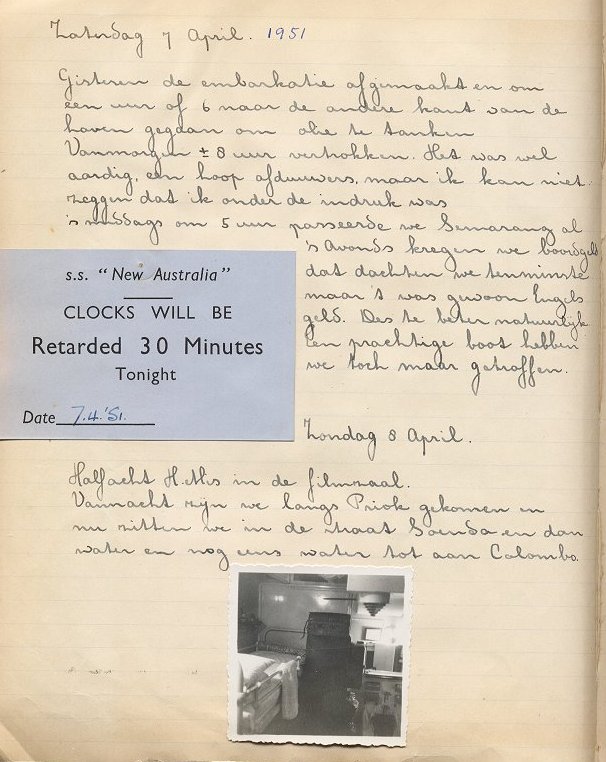 Zaterdag 7 April. 1951
Gisteren de embarkatie afgemaakt en om
een uur of 6 naar de andere kant van de
haven gegaan om olie te tanken
Vanmorgen ± 8 uur vertrokken. Het was wel
aardig, een hoop afduwers, maar ik kan niet
zeggen dat ik onder de indruk was
's middags om 5 uur passeerde we Semarang al
's Avonds kregen we boordgeld
dat dachten we tenminste
maar 't was gewoon Engels
geld. Des te beter natuurlijk
Een prachtige boot hebben
we toch maar getroffen.
s.s. "New Australia"
CLOCKS WILL BE
Retarded 30 Minutes
Tonight
Date 7.4.'51.
Zondag 8 April.
Halfacht H. Mis in de filmzaal.
Vannacht zijn we langs Priok gekomen en
nu zitten we in de straat Soenda en dan
water en nog eens water tot aan Colombo.